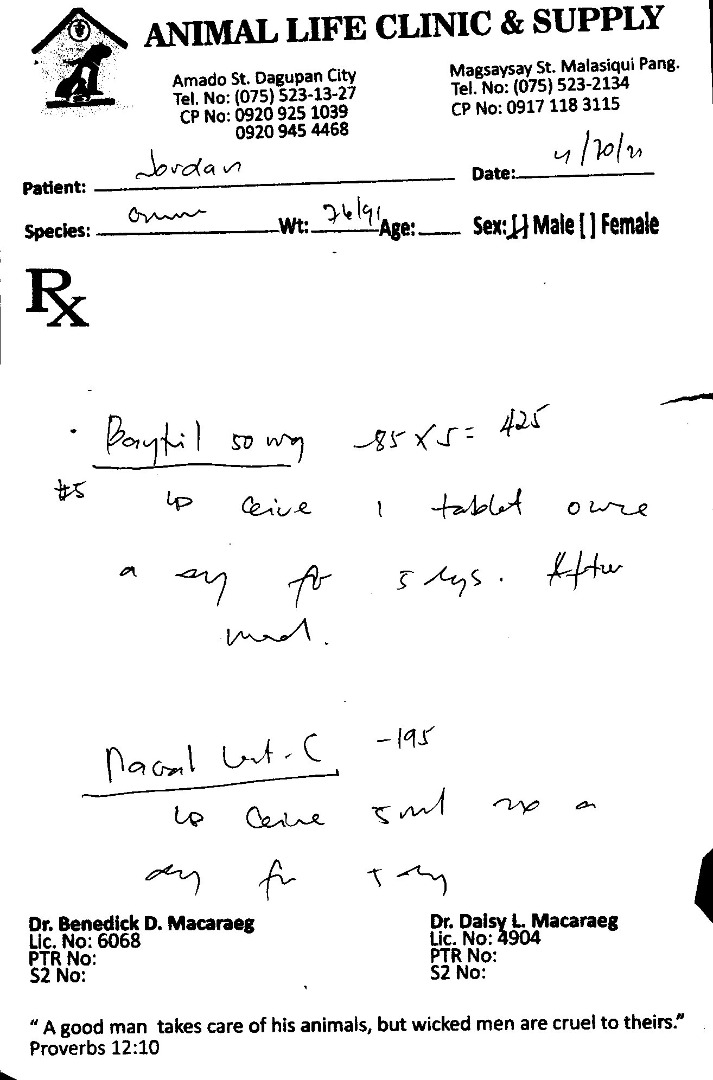 ANIMAL LIFE CLINIC & SUPPLY
Amado St. Dagupan City
Tel. No: (075) 523-13-27
CP No: 0920 925 1039
0920 945 4468
Magsaysay St. Malasiqui Pang.
Tel. No: (075) 523-2134
CP No: 0917 118 3115
Patient: Jordan Date:
Species: Wt: Age: Sex: [ ] Male [ ] Female
Rx
Baytril 50 mg -85 x 5 = 425
#5 1 tablet once
a for 5 After
Vit-C -195
5 ml a
for
Dr. Benedick D. Macaraeg
Lic. No: 6068
PTR No:
S2 No:
Dr. Daisy L. Macaraeg
Lic. No: 4904
PTR No:
S2 No:
" A good man takes care of his animals, but wicked men are cruel to theirs."
Proverbs 12:10